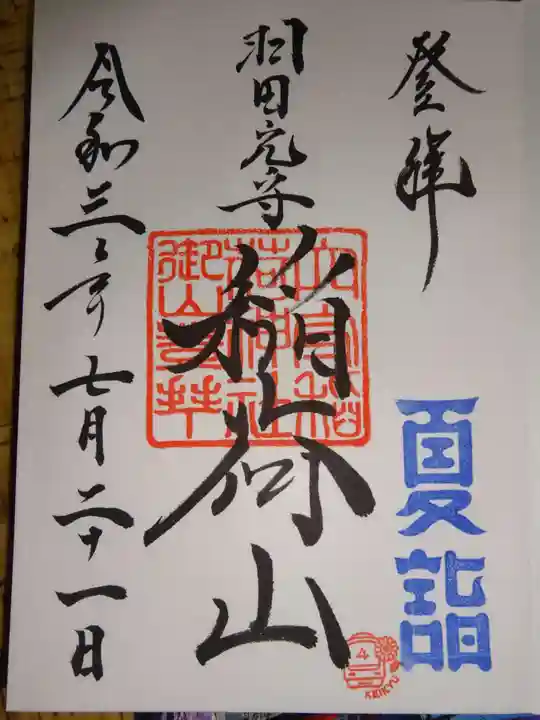 登拝
夏詣
羽田元守
稲荷山
令和三年七月二十一日
4
KEIKYU